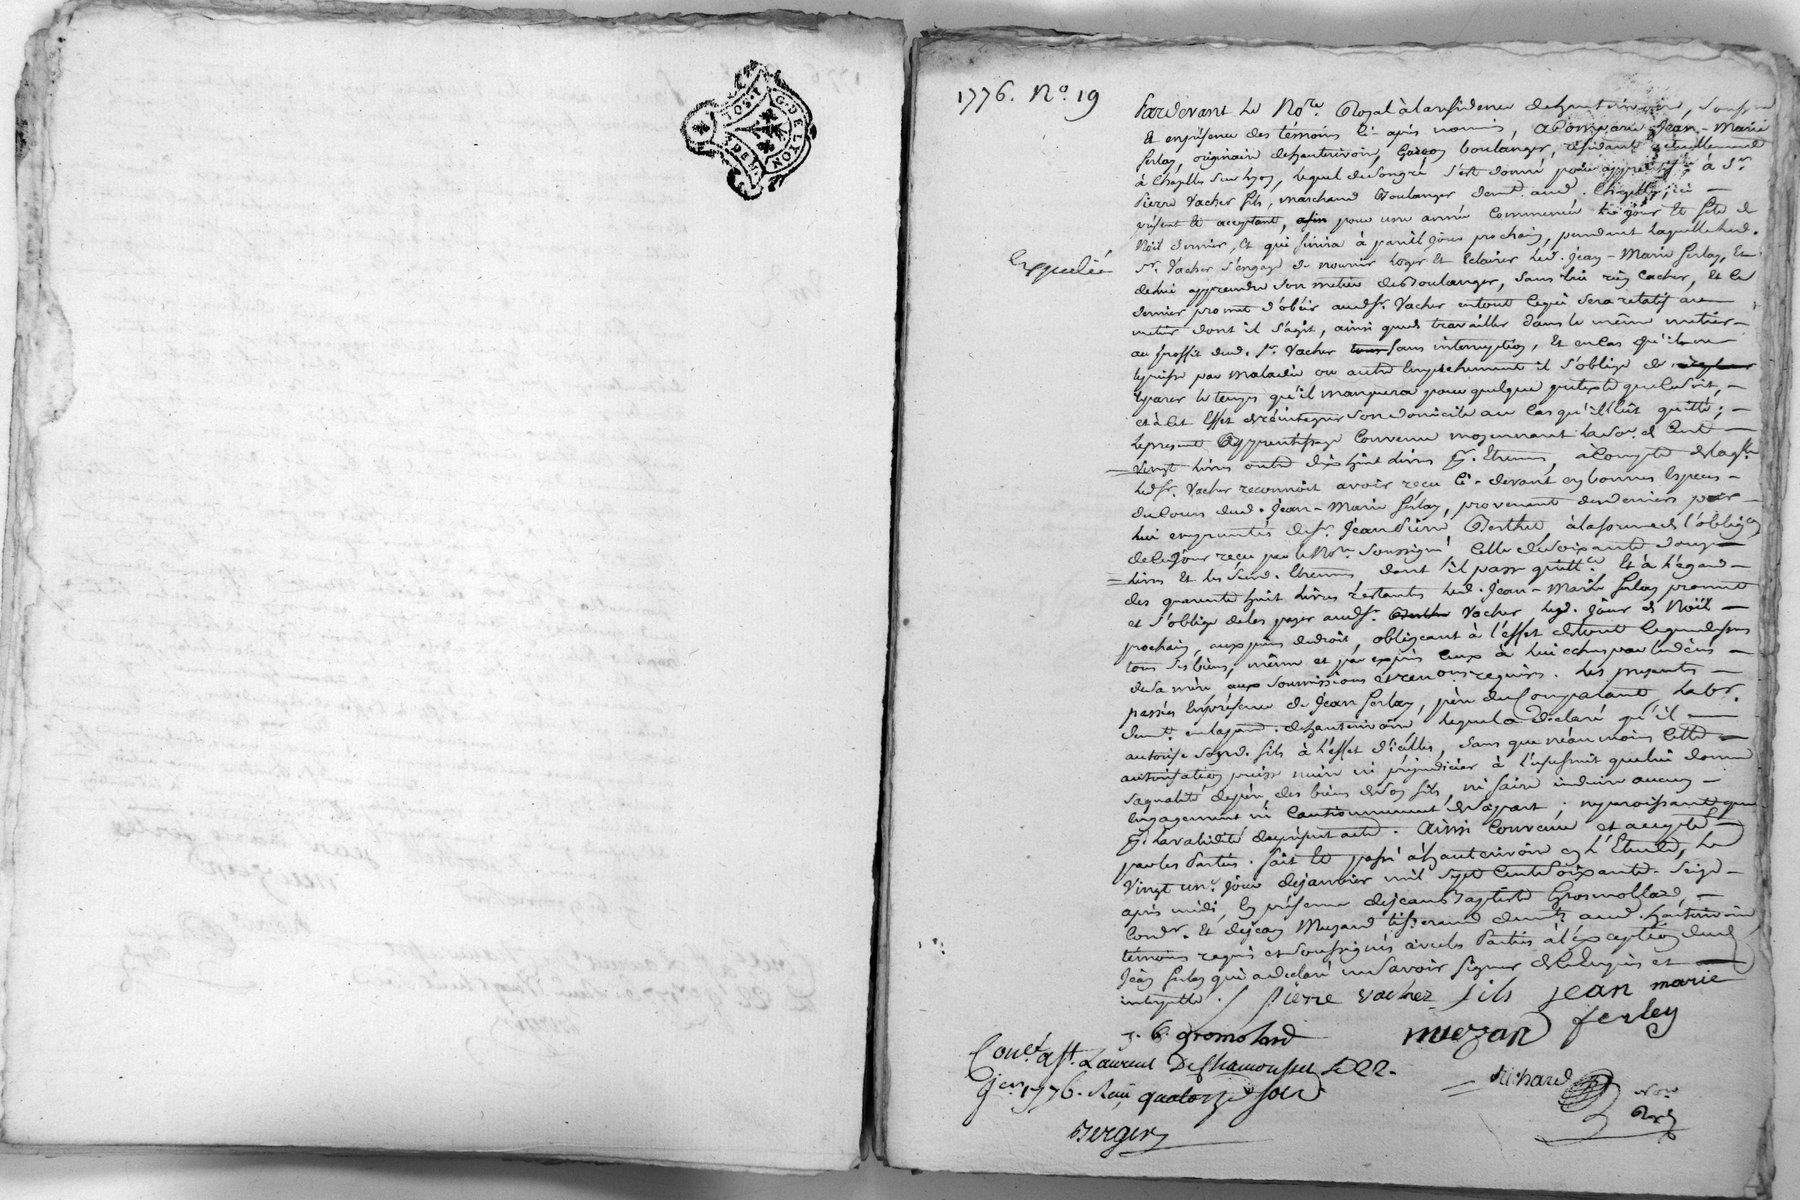 G. DE LYON
1776. No. 19
Pardevant Le No.re Royal à la residence dehauterivoire, soussigné
Et enprésence des témoins Ci après nommés, a Comparu Jean-Marie
ferlay, originaire dehauterivoire, Garçon boulanger, résidant actuellement
à Chazelles sur Lyon, lequel desongré s'est donné pour apprentif à Sr.
Pierre Vacher fils, marchand Boulanger demt. aud. Chazelles, ici
présent Et acceptant, afin pour une année Commencée le jour Et fête de
Noël dernier, Et qui finira à pareil jour prochain, pendant laquelle led.
Expediée
Sr. Vacher s'engage de nourrir loger Et Eclairer led. Jean-Marie ferlay, Et
delui apprendre son metier deBoulanger, sans lui rien Cacher, Et Ce
dernier promet d'obéir audSr. Vacher entout Cequi sera relatif au
metier dont il s'agit, ainsi quede travailler dans le même metier
au proffit dud. Sr. Vacher sans interruption, Et encas qu'il ne
le puisse par maladie ou autre Empêchement il s'oblige de
reparer le temps qu'il manquera pour quelque pretexte que Cesoit,
et à Cet Effet deréintegrer son domicile au Cas qu'il l'eût quitté;
Lepresent Apprentissage Convenu moyennant la So.e de Cent
Vingt livres outre dix huit livres pr. Etrennes, àCompte delaqlle
led Sr. Vacher reconnoit avoir reçu Ci-devant en bonnes Especes
duCours dud. Jean-Marie ferlay, provenant desdeniers par
lui empruntés de Sr. Jean Pierre Berthet àlaforme de l'obligon
deCejour reçue par leNore. soussigné, Celle desoixante douze
livres Et lesSusd. Etrennes dont il passe quittce. Et à l'égard
des quarente huit livres restantes led. Jean-Marie ferlay promet
et s'oblige deles payer audSr. Vacher led. jour de Noël
prochain, aux peines dedroit, obligeant à l'effet detout Cequedessus
tous ses biens, même et par exprès Ceux à lui echus par ledécès
desa mère, aux soumissions et renons. requises. Les presentes
passées Enprésence de Jean ferlay, père duComparant labr.
demt. enlapar. dehauterivoire lequel a déclaré qu'il
autorise sond. fils à l'effet d'icelles, sans que néanmoins Cette
autorisation puisse nuire ni préjudicier à l'usufruit que lui donne
saqualité depère des biens deson fils, ni faire induire aucun
Engagement ni Cautionnement desapart, n'y paroissant que
pr. la validité duprésent acte. Ainsi Convenu et accepté
parles Parties. fait Et passé àhauterivoire en l'Etude, le
Vingt un.e jour dejanvier mil sept Centsoixante-Seize
après midi, En présence dejeanBaptiste Grosmollard,
Cordr. Et dejean Muzard tisserand demts. aud. hauterivoire
témoins requis et soussignés avecles Parties à l'exception dud.
Jean ferlay qui a declaré ne savoir signer deCe Enquis et
interpellé.
Pierre vacher fils jean marie
ferley
j. b. gromolard
muzard
Conlé. à St. Laurent DeChamousset Le 22.
jer. 1776. Reçu quatorze sols
Berger
Richard
Nore.
Roy.